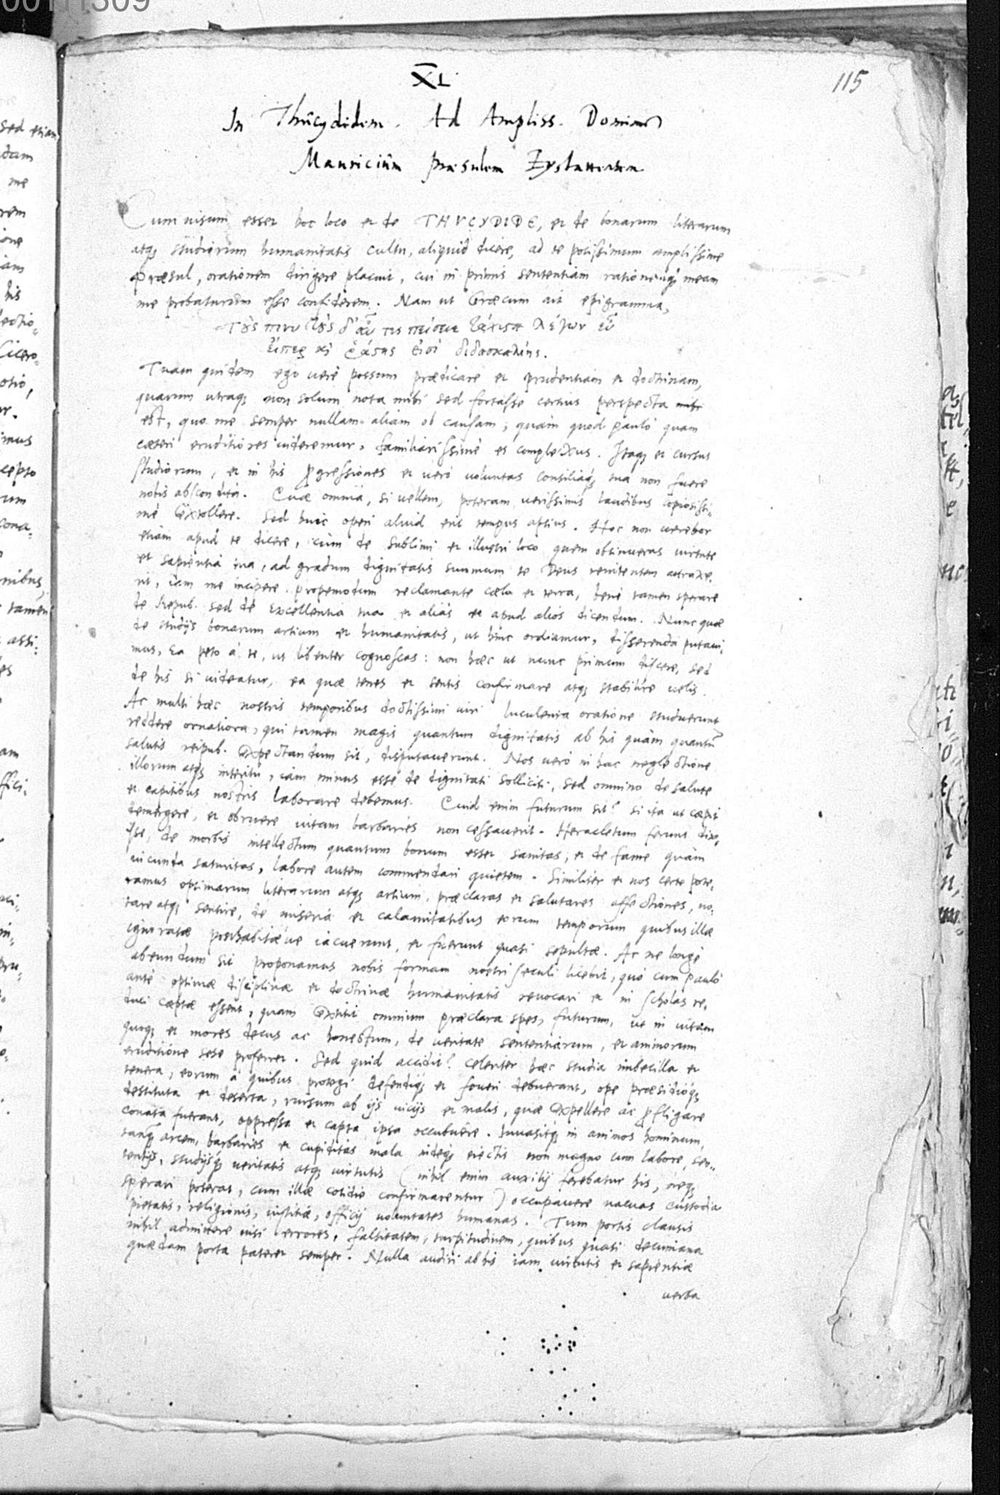 00111309
XL
115
In Thucydidem. Ad Ampliss. Dominum
Mauricium præsulem Eystattensem
Cum uisum esset hoc loco et de THVCYDIDE, et de bonarum literarum
atq; studiorum humanitatis cultu, aliquid dicere, ad te potissimum amplissime
Præsul, orationem dirigere placuit, cui in primis sententiam rationemq; meam
me probaturum esse confiderem. Nam ut Græcum ait epigramma,
Τοὺς πινυτοὺς δ' ἄν τις πείσειε τάχιστα λέγων εὖ
Tuam quidem ego uere possum prædicare et prudentiam et doctrinam,
quarum utraq; non solum nota mihi sed fortasse certius perspecta mihi
est, quo me semper nullam aliam ob causam, quàm quod paulò quam
cæteri eruditiores uideremur, familiarissime es complexus. Itaq; et cursus
studiorum, et in his progressiones et uerò voluntas consiliaq; tua non fuere
nobis abscondita. Quæ omnia, si uellem, poteram uerissimis laudibus copiosissi-
mè extollere. Sed huic operi aliud erit tempus aptius. Hoc non uerebor
etiam apud te dicere, cùm de sublimi et illustri loco quem obtinueras uirtute
et sapientia tua, ad gradum dignitatis summum te Deus renitentem attraxe-
rit, iam me incipere propemodum reclamante cælo et terra, bene tamen sperare
de Repub. Sed de excellentia tua et aliàs et apud alios dicendum. Nunc quæ
de studijs bonarum artium et humanitatis, ut hinc ordiamur, disserenda putaui-
mus, ea peto à te, ut libenter cognoscas: non hæc ut nunc primum discere, sed
de his si uideatur, ea quæ tenes et sentis confirmare atq; stabilire uelis.
Ac multi hæc nostris temporibus doctissimi uiri luculenta oratione studuerunt
reddere ornatiora, qui tamen magis quantum dignitatis ab his quàm quantum
salutis reipub. expectandum sit, disputauerunt. Nos uerò in hac neglectione
illorum atq; interitu, iam minus esse de dignitati solliciti, sed omnino de salute
et capitibus nostris laborare debemus. Quid enim futurum sit? si ita ut cæpit
demergere, et obruere uitam barbaries non cessauerit. Heraclitum ferunt dixis-
se, de morbis intellectum quantum bonum esset sanitas, et de fame quàm
iucunda saturitas, labore autem commendari quietem. Similiter et nos certe pote-
ramus optimarum literarum atq; artium, præclaras et salutares affectiones, no-
tare atq; sentire, de miseria et calamitatibus eorum temporum quibus illæ
ignoratæ prohibitæue iacuerunt, et fuerunt quasi sepultæ. Ac ne longè
abeundum sit proponamus nobis formam nostri seculi licebit, quo cum paulò
antè optimæ disciplinæ et doctrinæ humanitatis reuocari et in scholas re-
duci cæptæ essent, quam extitit omnium præclara spes, futurum, ut in uitam
quoq; et mores decus ac honestum, de ueritate sententiarum, et animorum
eruditione sese proferret. Sed quid accidit? Celeriter hæc studia imbecilla et
tenera, eorum à quibus protegi defendiq; et foueri debuerant, ope præsidioq;
destituta et deserta, rursum ab ijs uicijs et malis, quæ expellere ac profligare
conata fuerant, oppressa et capta ipsa occubuere. Inuasitq; in animos hominum,
tanq; arcem, barbaries et cupiditas mala indeq; eiectis non magno cum labore, sen-
tentijs, studijsq; ueritatis atq; uirtutis (nihil enim auxilij ferebatur his, neq;
sperari poterat, cum illæ cotidie confirmarentur) occupauere uacuas custodia
pietatis, religionis, iustitiæ, officij uoluntates humanas. Tum portis clausis
nihil admittere nisi errores, falsitatem, turpitudinem, quibus quasi decumana
quædam porta pateret semper. Nulla audiri ab his iam uirtutis et sapientiæ
uerba